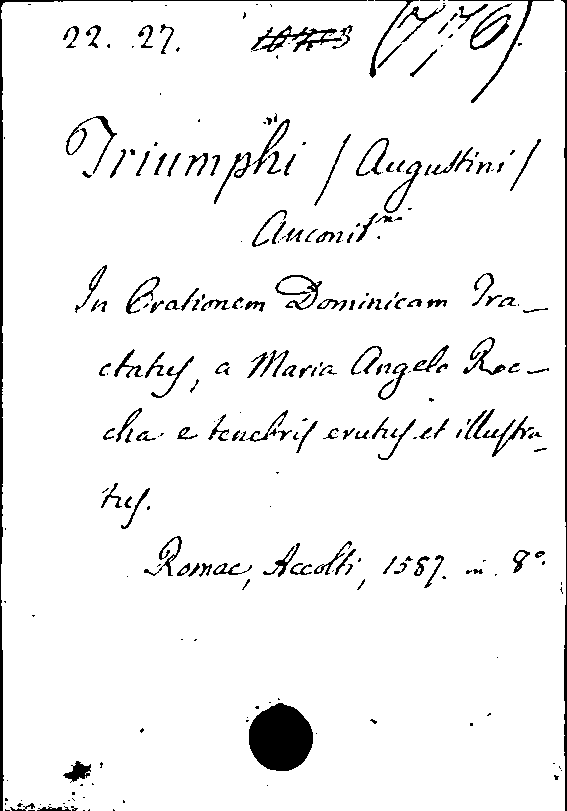 22. 27. (776).
Triumphi / Augustini /
Anconit.ni
In Orationem Dominicam Tra-
ctatus, a Maria Angelo Roc-
cha e tenebris erutus et illustra-
tus.
Romae, Accolti, 1587. in 8°.